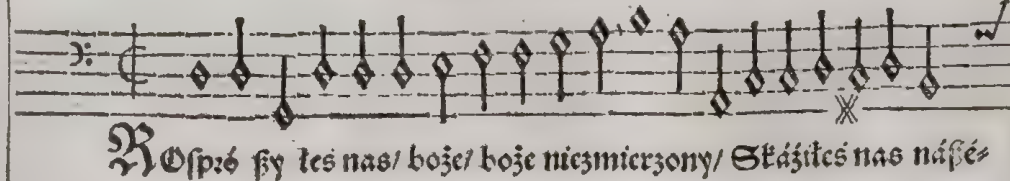 ROſpró ßy łeś nas/ boże/ boże niezmierzony/ Skáźiłeś nas náßé⸗